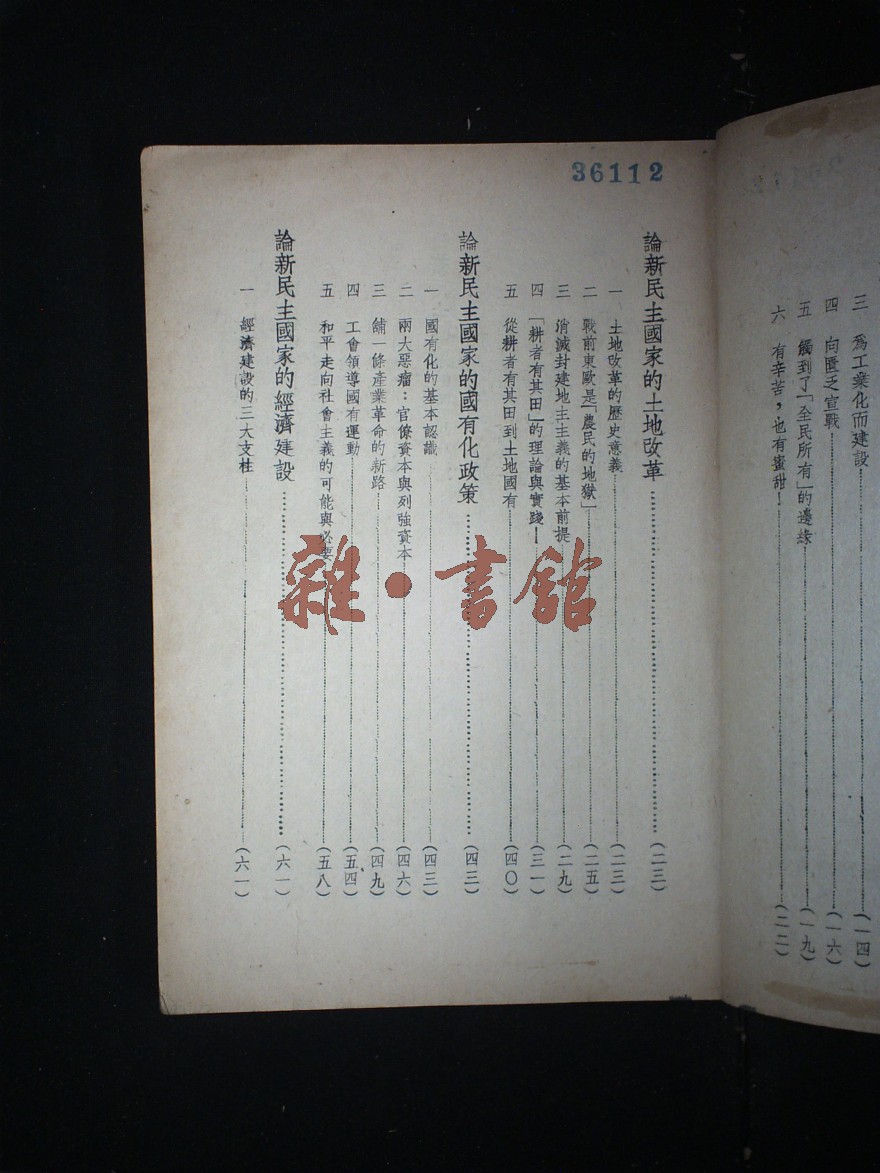 三 為工業化而建設(一四)
四 向匱乏宣戰(一六)
五 觸到了「全民所有」的邊緣(一九)
六 有辛苦,也有蜜甜!(二二)
36112
論新民主國家的土地改革(二三)
一 土地改革的歷史意義(二三)
二 戰前東歐是「農民的地獄」(二五)
三 消滅封建地主主義的基本前提(二九)
四 「耕者有其田」的理論與實踐(三一)
五 從耕者有其田到土地國有(四〇)
論新民主國家的國有化政策(四三)
一 國有化的基本認識(四三)
二 兩大惡瘤:官僚資本與列強資本(四六)
三 舖一條產業革命的新路(四九)
四 工會領導國有運動(五四)
五 和平走向社會主義的可能與必要(五八)
論新民主國家的經濟建設(六一)
一 經濟建設的三大支柱(六一)
雜·書館